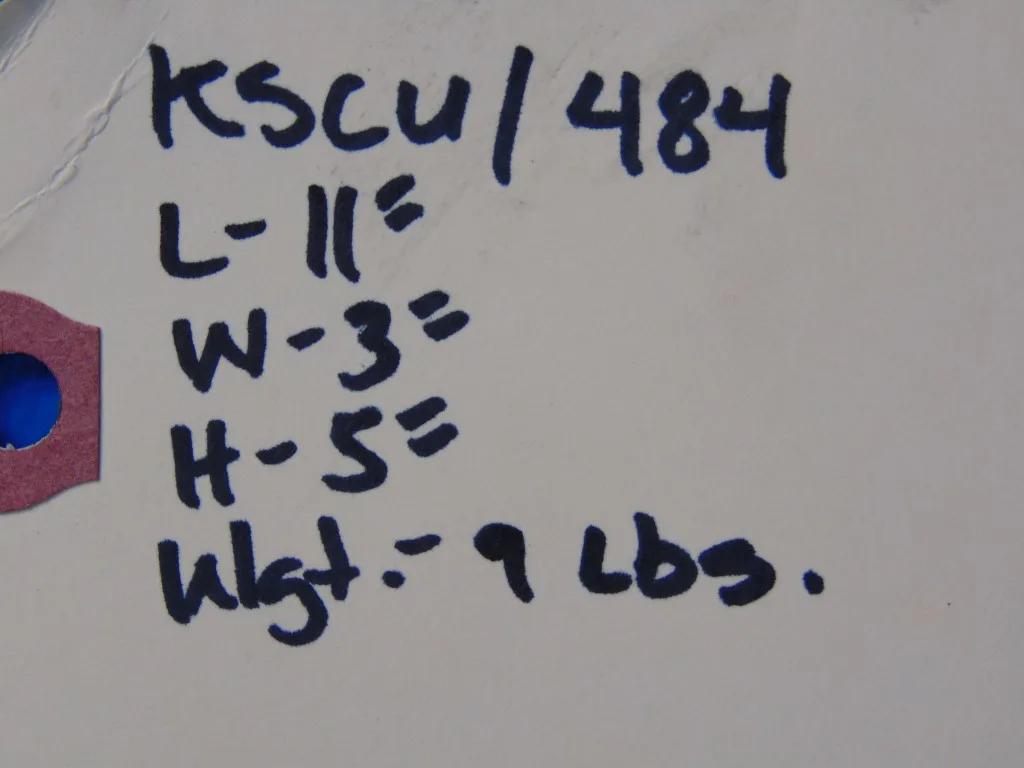 KSCU/484
L- 11"
W- 3"
H- 5"
Wgt.- 9 Lbs.